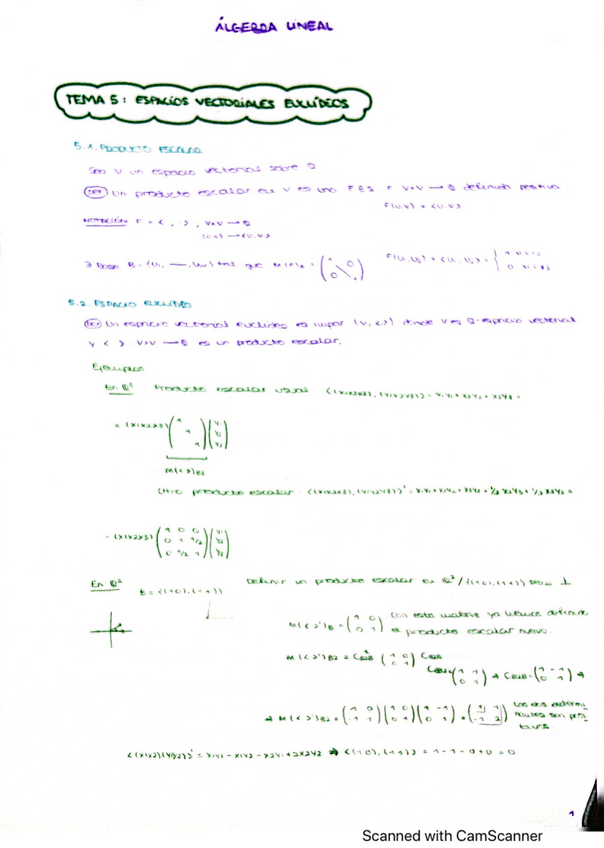 ÁLGEBRA LINEAL
TEMA 5: ESPACIOS VECTORIALES EUCLÍDEOS
5.1. PRODUCTO ESCALAR
Sea V un espacio vectorial sobre ℝ
DEF Un producto escalar en V es una FBS F: V×V → ℝ definida positiva.
F(u,v) = <u,v>
NOTACIÓN F = < , >, V×V → ℝ
(u,v) → <u,v>
∃ Base B = {u₁, —, uₙ} tal que
5.2. ESPACIO EUCLÍDEO
DEF Un espacio vectorial euclídeo es un par (V, <,>) donde V es ℝ-espacio vectorial
y < >: V×V → ℝ es un producto escalar.
Ejemplos
En ℝ³ Producto escalar usual <(x1x2x3), (y1y2y3)> = x1y1 + x2y2 + x3y3 =
= (x1x2x3) (1 1 1) (y1 y2 y3)
M(< >)B3
Otro producto escalar: <(x1x2x3), (y1y2y3)>' = x1y1 + x2y2 + x3y3 + 1/2 x2y3 + 1/2 x3y2 =
= (x1x2x3) (1 0 0 / 0 1 1/2 / 0 1/2 1) (y1 y2 y3)
En ℝ² B = {(1,0), (1,1)} Definir un producto escalar en ℝ² / {(1,0), (1,1)} sean ⊥
M(< >')B = (1 0 / 0 1) Con esta matriz ya hemos definido
el producto escalar nuevo
(1 0 / 0 1)
(1 1 / 0 1) (1 -1 / 0 1)
⇒ M(< >')B2 = (1 0 / -1 1) (1 0 / 0 1) (1 -1 / 0 1) = (1 -1 / -1 2) Los dos determi-
nantes son posi-
tivos
<(x1x2)(y1y2)>' = x1y1 - x1y2 - x2y1 + 2x2y2 ⇒ <(1,0), (1,1)> = 1 - 1 - 0 + 0 = 0
1
Scanned with CamScanner